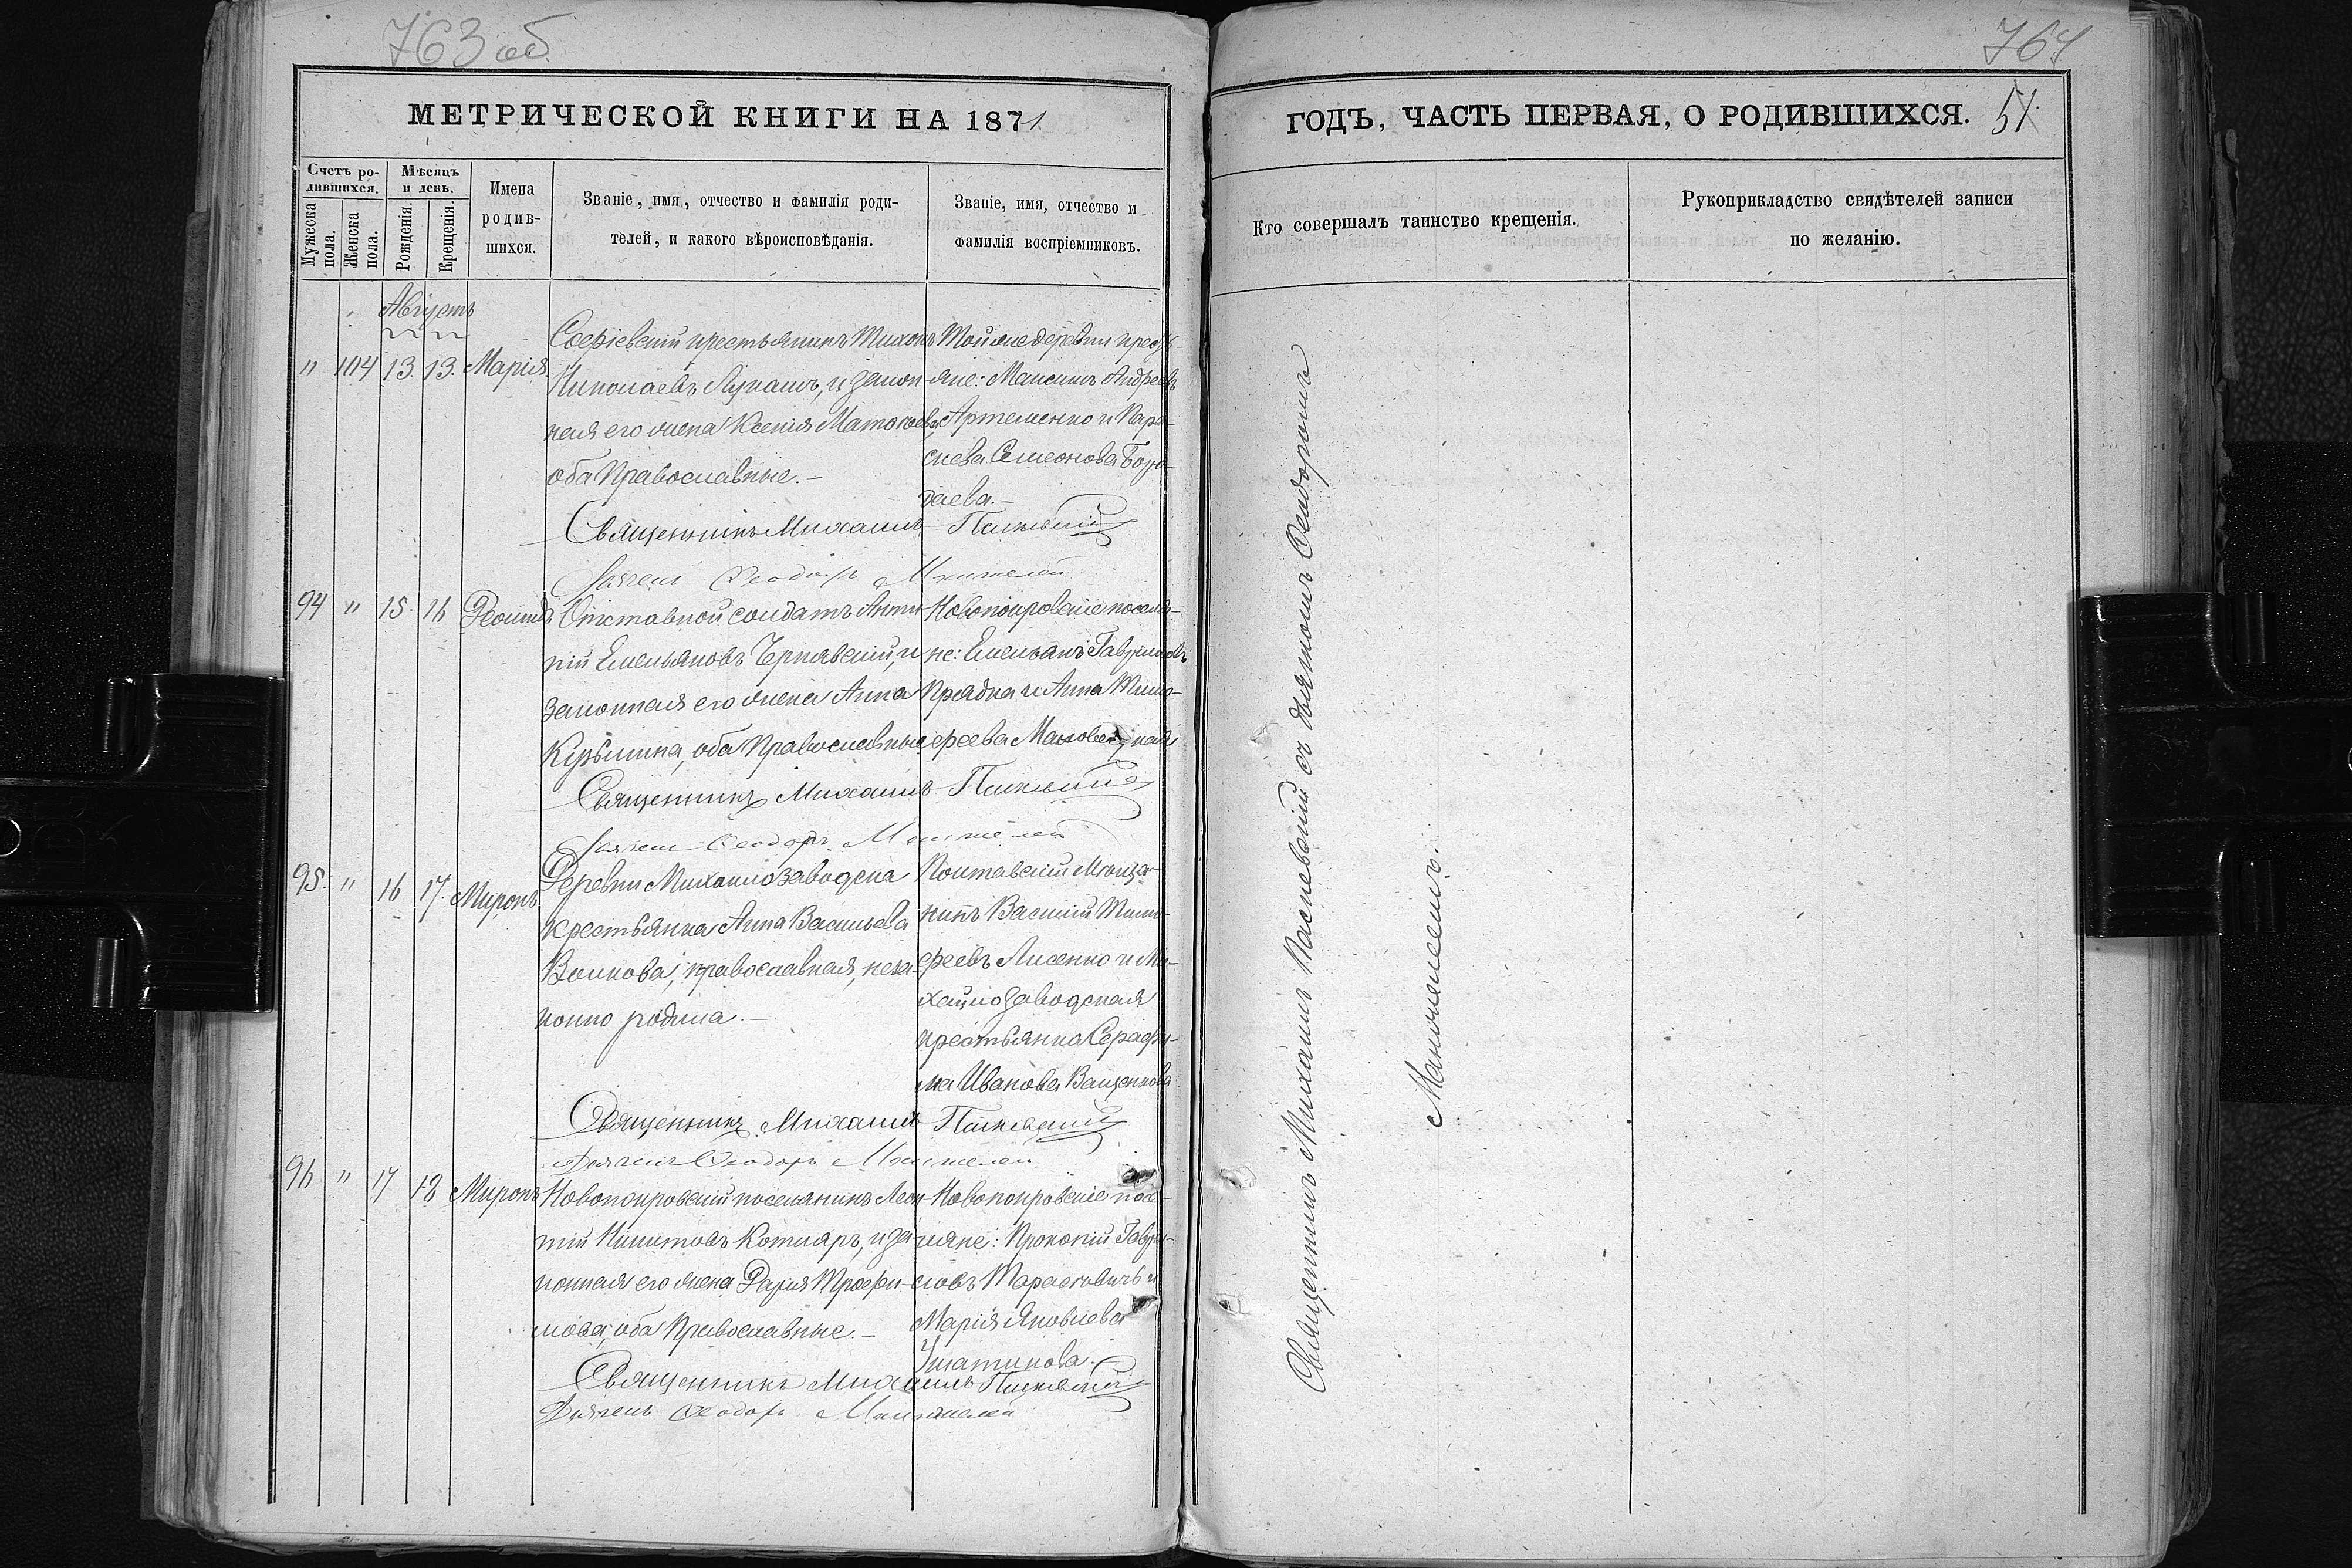 763 об
МЕТРИЧЕСКОЙ КНИГИ НА 1871.
Счетъ ро-
дившихся.
Мужеска
пола.
Женска
пола.
Мѣсяцъ
и день.
Рожденія.
Крещенія.
Имена
родив-
шихся.
Званіе, имя, отчество и фамилія роди-
телей, и какого вѣроисповѣданія.
Званіе, имя, отчество и
фамилія воспріемниковъ.
Августъ
" 104 13. 13. Марія
Софіевскій крестьянинъ Тихонъ
Николаевъ Лукашъ, и закон-
ная его жена Ксенія
оба Православные.-
Тойже деревни кресть-
яне: Максимъ Андреевъ
Артеменко и Пара-
скева Семеонова
даева.-
Священникъ Михаилъ
Дьячекъ Ѳеодоръ
94 " 15. 16 Леонидъ
Отставной солдатъ
пій Емельяновъ Чернявскій, и
законная его жена Анна
Кузьмина, оба Православные
Новопокровскіе поселя-
не: Емельянъ Гавриловъ
Прядка и Анна Тимо-
феева
Священникъ Михаилъ
Дьячекъ Ѳеодоръ
95. " 16 17. Миронъ
Деревни Михайлозаводска
крестьянка Анна Васильева
Волкова, православная, неза-
конно родила.-
Полтавскій Мѣща-
нинъ Василій Тимо-
феевъ Лисенко и Ми-
хайлозаводская
крестьянка Серафи-
ма Иванова Ващенкова
Священникъ Михаилъ
Дьячекъ Ѳеодоръ
96 " 17 18 Миронъ
Новопокровскій поселянинъ Леон-
тій Никитовъ Котляръ, и за-
конная его жена Дарія Трофи-
мова, оба Православные.-
Новопокровскіе посе-
ляне: Прокопій Гаври-
ловъ Тарасовичъ и
Марія Яковлева
Священникъ Михаилъ
Дьячекъ Ѳеодоръ
764
ГОДЪ, ЧАСТЬ ПЕРВАЯ, О РОДИВШИХСЯ.
51.
Кто совершалъ таинство крещенія.
Рукоприкладство свидѣтелей записи
по желанію.
Священникъ Михаилъ съ дьячкомъ Ѳеодоромъ